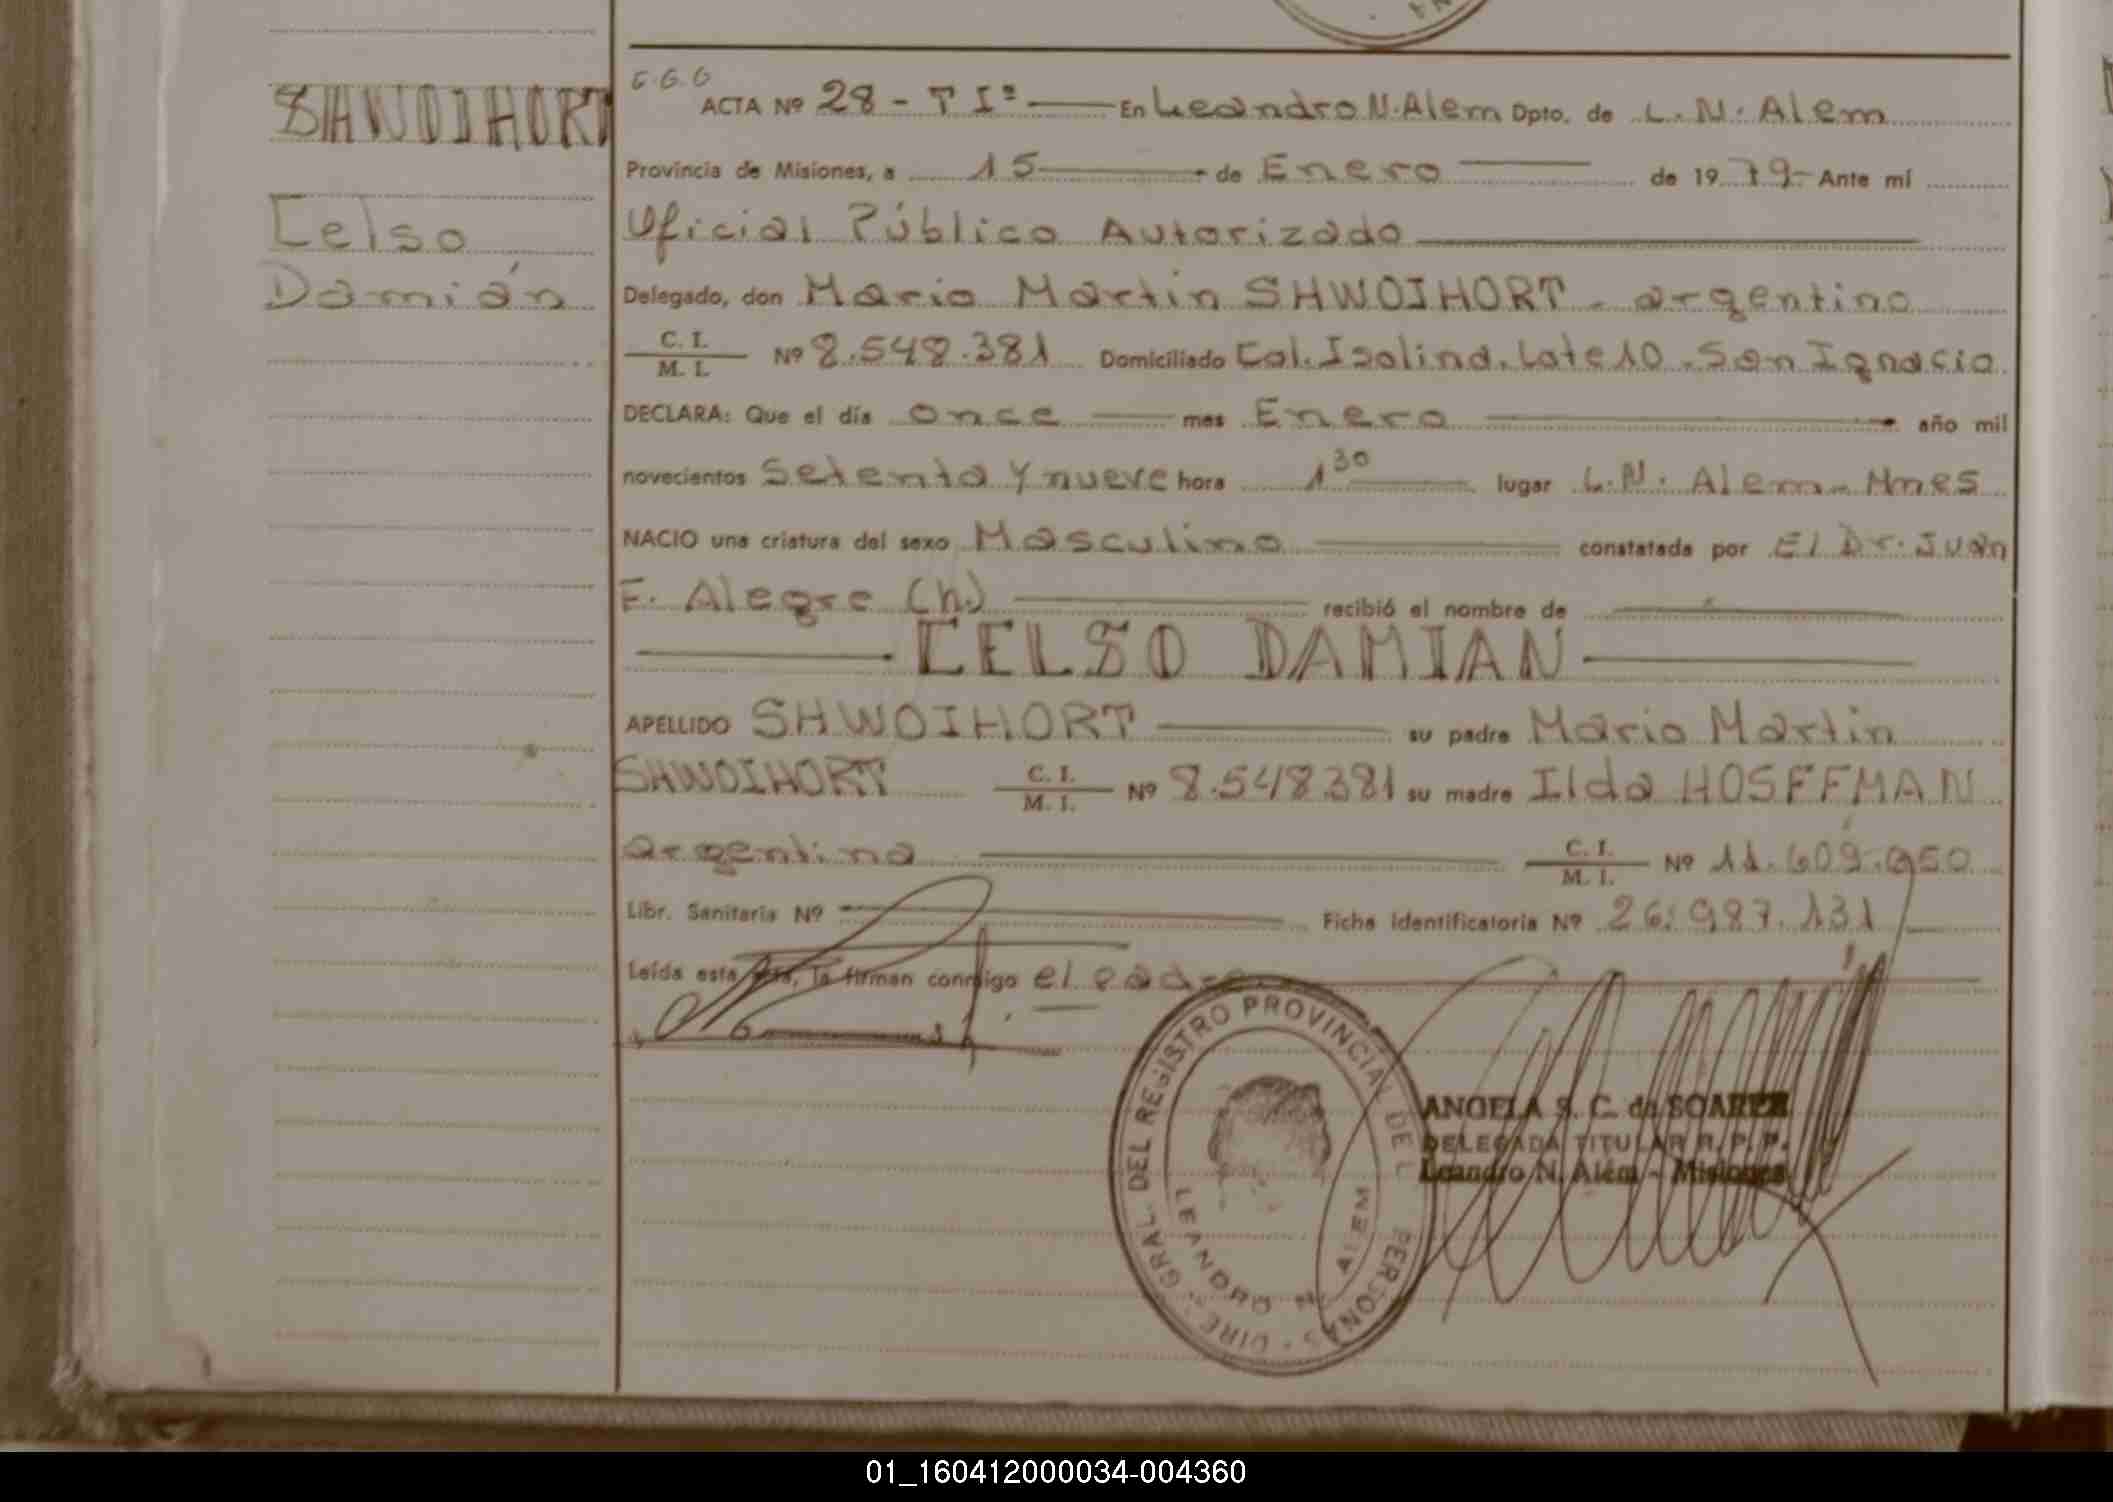 SHWOIHORT
Celso
Damián
E.G.G
ACTA Nº 28 - T Iº En Leandro N. Alem Dpto. de L. N. Alem
Provincia de Misiones, a 15 de Enero de 1979- Ante mí
Oficial Público Autorizado
Delegado, don Mario Martin SHWOIHORT - argentino
C. I.
M. I. Nº 8.548.381 Domiciliado Col. Isolina. Lote 10. San Ignacio.
DECLARA: Que el día once mes Enero año mil
novecientos Setenta y nueve hora 1 30 lugar L. N. Alem - Mnes
NACIO una criatura del sexo Masculino constatada por El Dr. Juan
F. Alegre (h.) recibió el nombre de
CELSO DAMIAN
APELLIDO SHWOIHORT su padre Mario Martin
SHWOIHORT C. I.
M. I. Nº 8.548.381 su madre Ilda HOSFFMAN
argentina C. I.
M. I. Nº 11.609.050
Libr. Sanitaria Nº Ficha Identificatoria Nº 26.987.131
Leída esta acta, la firman conmigo el padre
DIRE. GRAL. DEL REGISTRO PROVINCIAL DEL PERSONAS
LEANDRO N. ALEM
ANGELA S. C. de SOAREZ
DELEGADA TITULAR R. P. P.
Leandro N. Alem - Misiones
01_160412000034-004360